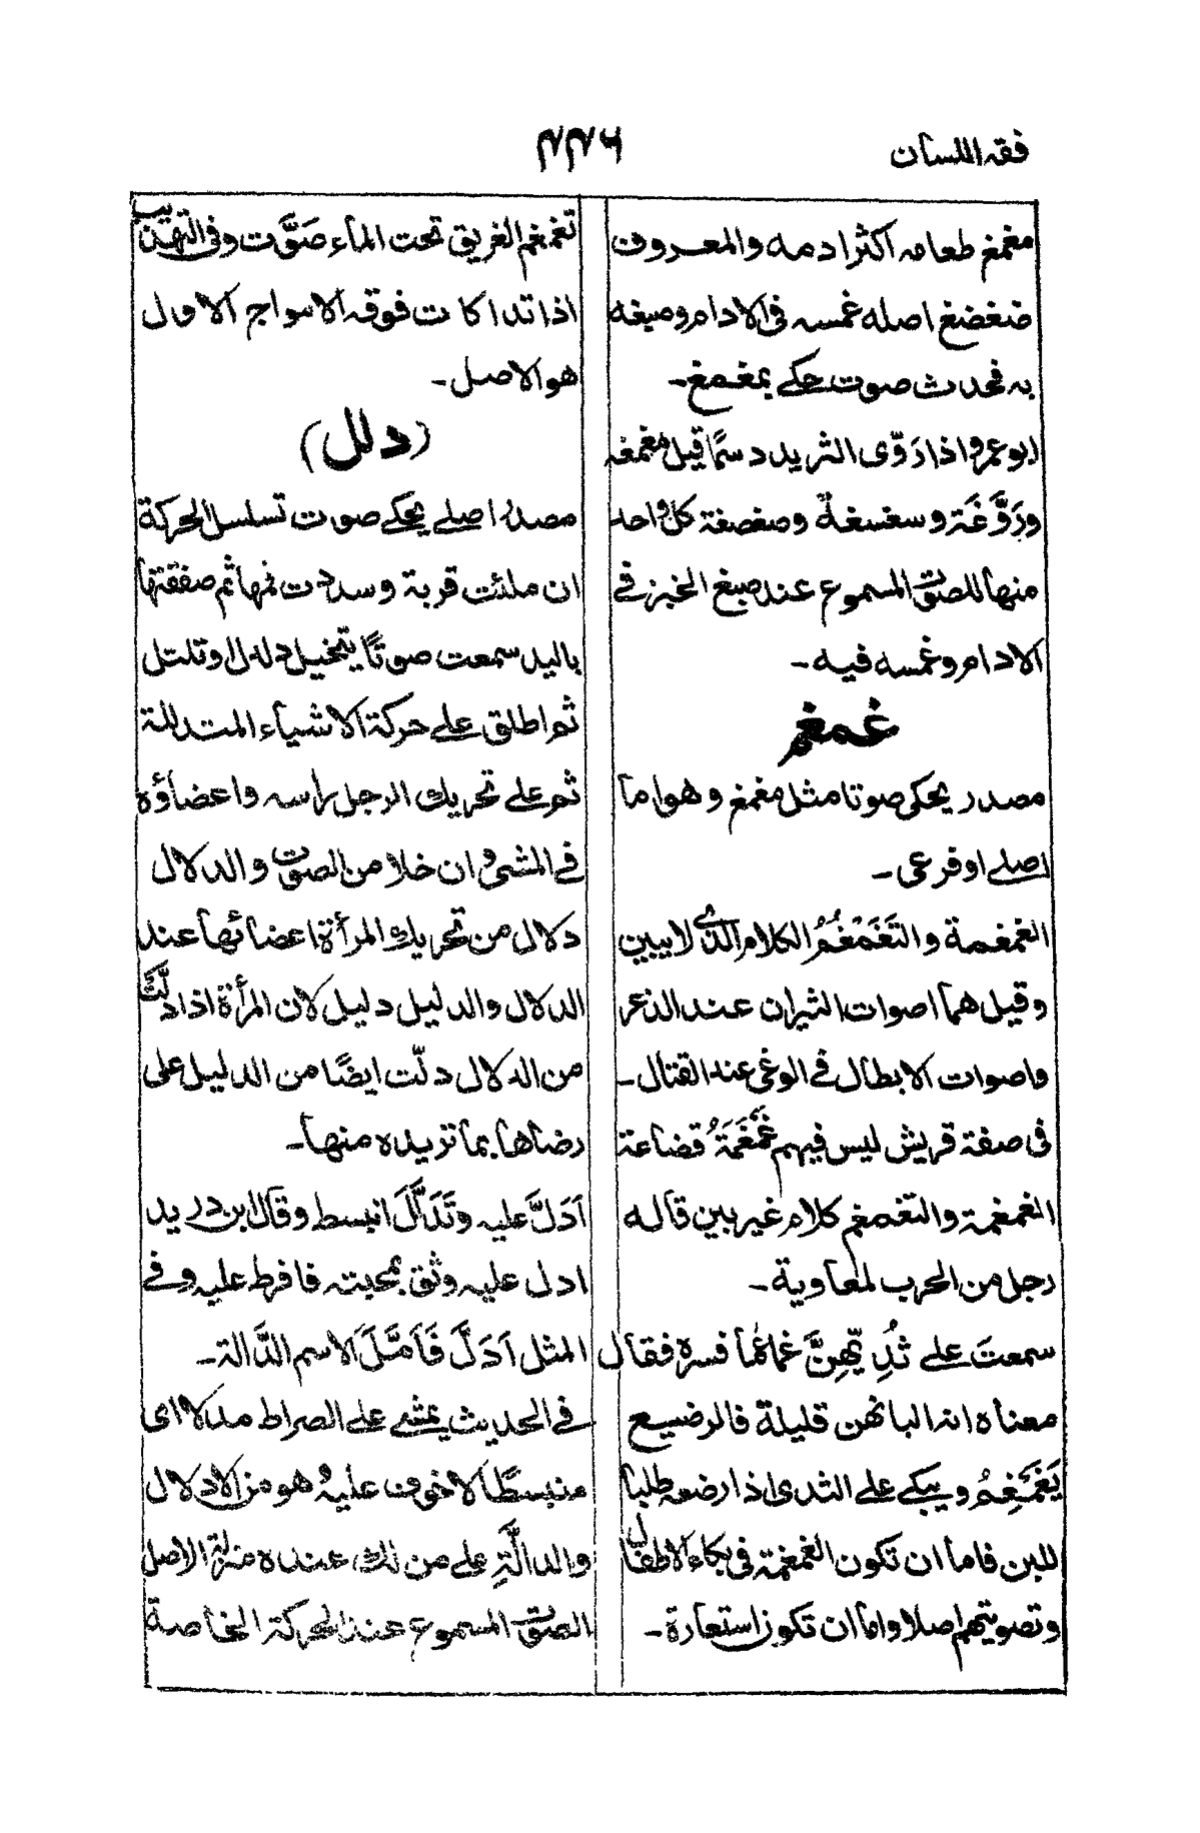 فقه اللسان
۲۲۶
مغمغ طعامه اكثر ادمه والمعروف
ضغضغ اصله غمسه فى الادام وصبغه
به فحدث صوت حكے بمغمغ۔
ابو عمرو اذا روّى الثريد دسمًا قيل مغمغه
وروَّغَة وسغسغةٌ وصغصغة كل واحد
منها للصوت المسموع عند صبغ الخبز فے
الادام وغمسه فيه۔
غمغم
مصدر يحكى صوتا مثل مغمغ وهو اما
اصلے او فرعى۔
الغمغمة والتَغَمْغُمُ الكلام الذى لا يبين
وقيل هما اصوات الثيران عند الذعر
واصوات الابطال فے الوغى عند القتال۔
فى صفة قريش ليس فيهم غَمْغَمَةُ قضاعة
الغمغمة والتغمغم كلام غير بين قاله
رجل من العرب لمعاوية۔
سمعتَ علے ثُدِيّهِنَّ غماغما فسره فقال
معناه ان البانهن قليلة فالرضيع
يَغَمْغِمُ ويبكے علے الثدى اذا رضعه طلبا
للبن فاما ان تكون الغمغمة فى بكاء الاطفال
وتصويتهم اصلا واما ان تكون استعارة۔
تغمغم الغريق تحت الماء صَوَّت وفى التهذيب
اذا تداكات فوقه الامواج الاول
هو الاصل۔
(دلل)
مصدر اصلے يحكے صوت تسلسل الحركة
ان ملئت قربة وسددت فمها ثم صفقتها
باليد سمعت صوتًا يتخيل دلدل او تلتل
ثم اطلق علے حركة الاشياء المتدللة
ثم علے تحريك الرجل راسه واعضاؤه
فے المشى وان خلا من الصوت والدلال
دلال من تحريك المرأة اعضائها عند
الدلال والدليل دليل لان المرأة اذا دلَّت
من الدلال دلّت ايضًا من الدليل على
رضاها بما تريده منها۔
اَدَلَّ عليه وتَدَلَّلَ انبسط وقال ابن دريد
ادل عليه وثق بمحبته فافرط عليه وفے
المثل اَدَلَّ فَاَمَلَّ الاسم الدَّالة۔
فے الحديث يمشے علے الصراط مدلا اى
منبسطًا لا خوف عليه هو من الادلال
والدالَّةِ علے من لك عنده منزلة الاصل
الصوت المسموع عند الحركة الخاصة